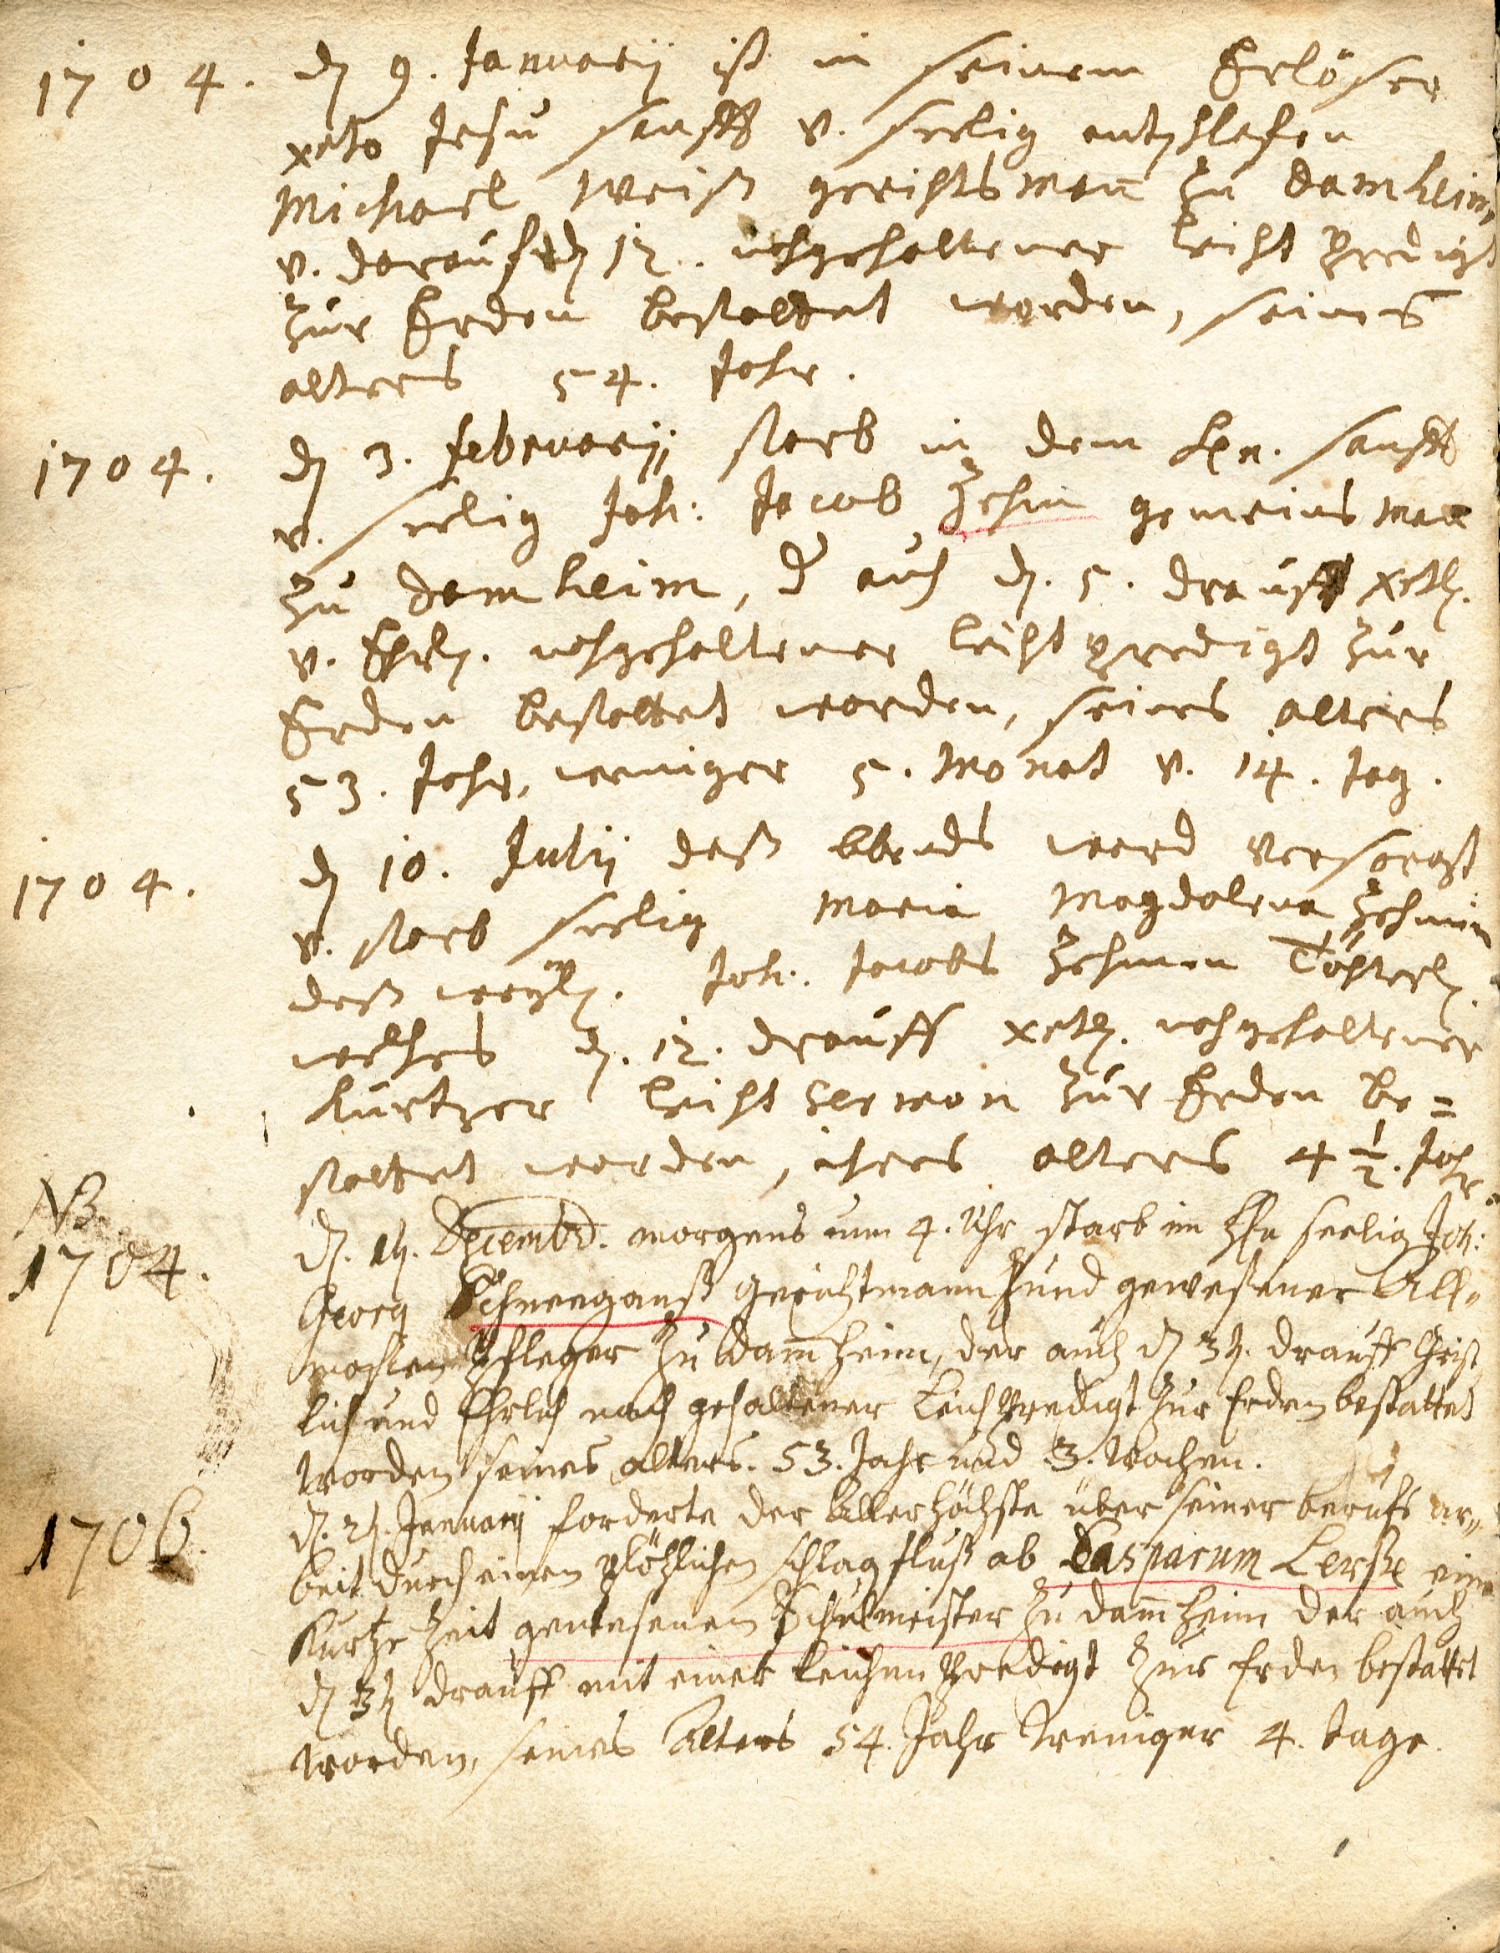 1704. dh 9. Januarij ist in seinem Erlöser
xsto Jesu sanfft v. seelig entschlafen
Michael Weiß gerichtsman zu Damheim,
v. darauf dh 12. nachgehaltener leicht predigt
zur Erden bestattet worden, seines
alters 54. Jahr.
1704. dh 3. februarij starb in dem Hen. sanfft
v. seelig Joh: Jacob Zehm gemeinsman
zu Damheim, d auch dh. 5. drauff xstl.
v. Ehrl. nachgehaltener leicht predigt zur
Erden bestattet worden, seines alters
53. Jahr, weniger 5. Monat v. 14. tag.
1704. dh 10. Julij deß Abends ward versorgt
v. starb seelig Maria Magdalena Zehmin
deß weyl. Joh: Jacobs Zehmen Töchterl.
welches dh. 12. drauff xstl. nachgehaltener
kurtzer leicht sermon zur Erden be=
stattet worden, ihres alters 4 1/2. Jahr.
NB
1704. d. Decembr. morgens um 4. Uhr starb im Hhn seelig Joh:
Georg Schneeganß Gerichtmann und gewesener All=
mosen Pfleger zu Dam̅heim, der auch d drauff Christ
lich und Ehrlich nach gehaltener Leich Predigt zur Erden bestattet
worden seines alters. 53. Jahr und 3. Wochen.
1706. d. Januarij forderte der Allerhöchste über seiner berufs ar=
beit durch einen plötzlichen schlagfluß ab Casparum Lerße eine
kurtze Zeit gewesenen Schulmeister zu Dam̅heim der auch
d drauff mit einer Leichen Predigt zur Erden bestattet
worden, seines Alters 54. Jahr weniger 4. tage.